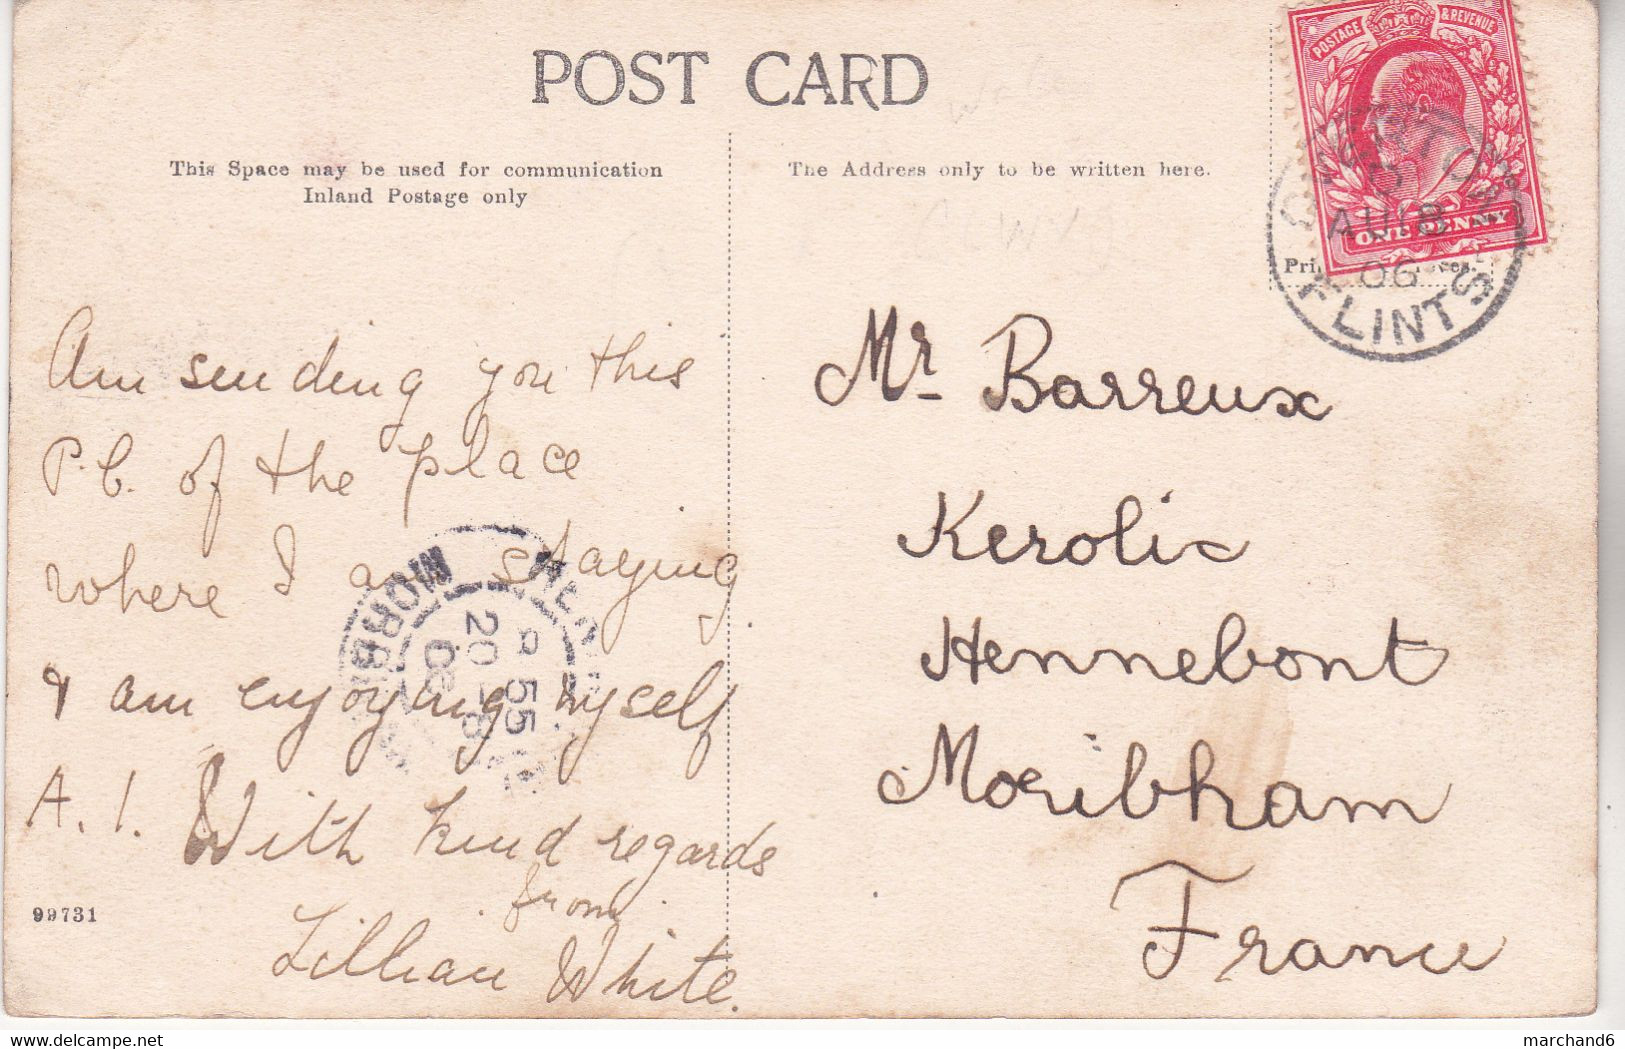 POST CARD
This Space may be used for communication
Inland Postage only
The Address only to be written here.
POSTAGE & REVENUE
ONE PENNY
AU 18
06
FLINTS
Am sending you this
P.C. of the place
where I am staying
& am enjoying myself
A.1. With kind regards
from
Lillian White.
99731
Mr Barreux
Kerolix
Hennebont
Moribham
France
MORBIHAN
20 -8
06
marchand6
delcampe.net